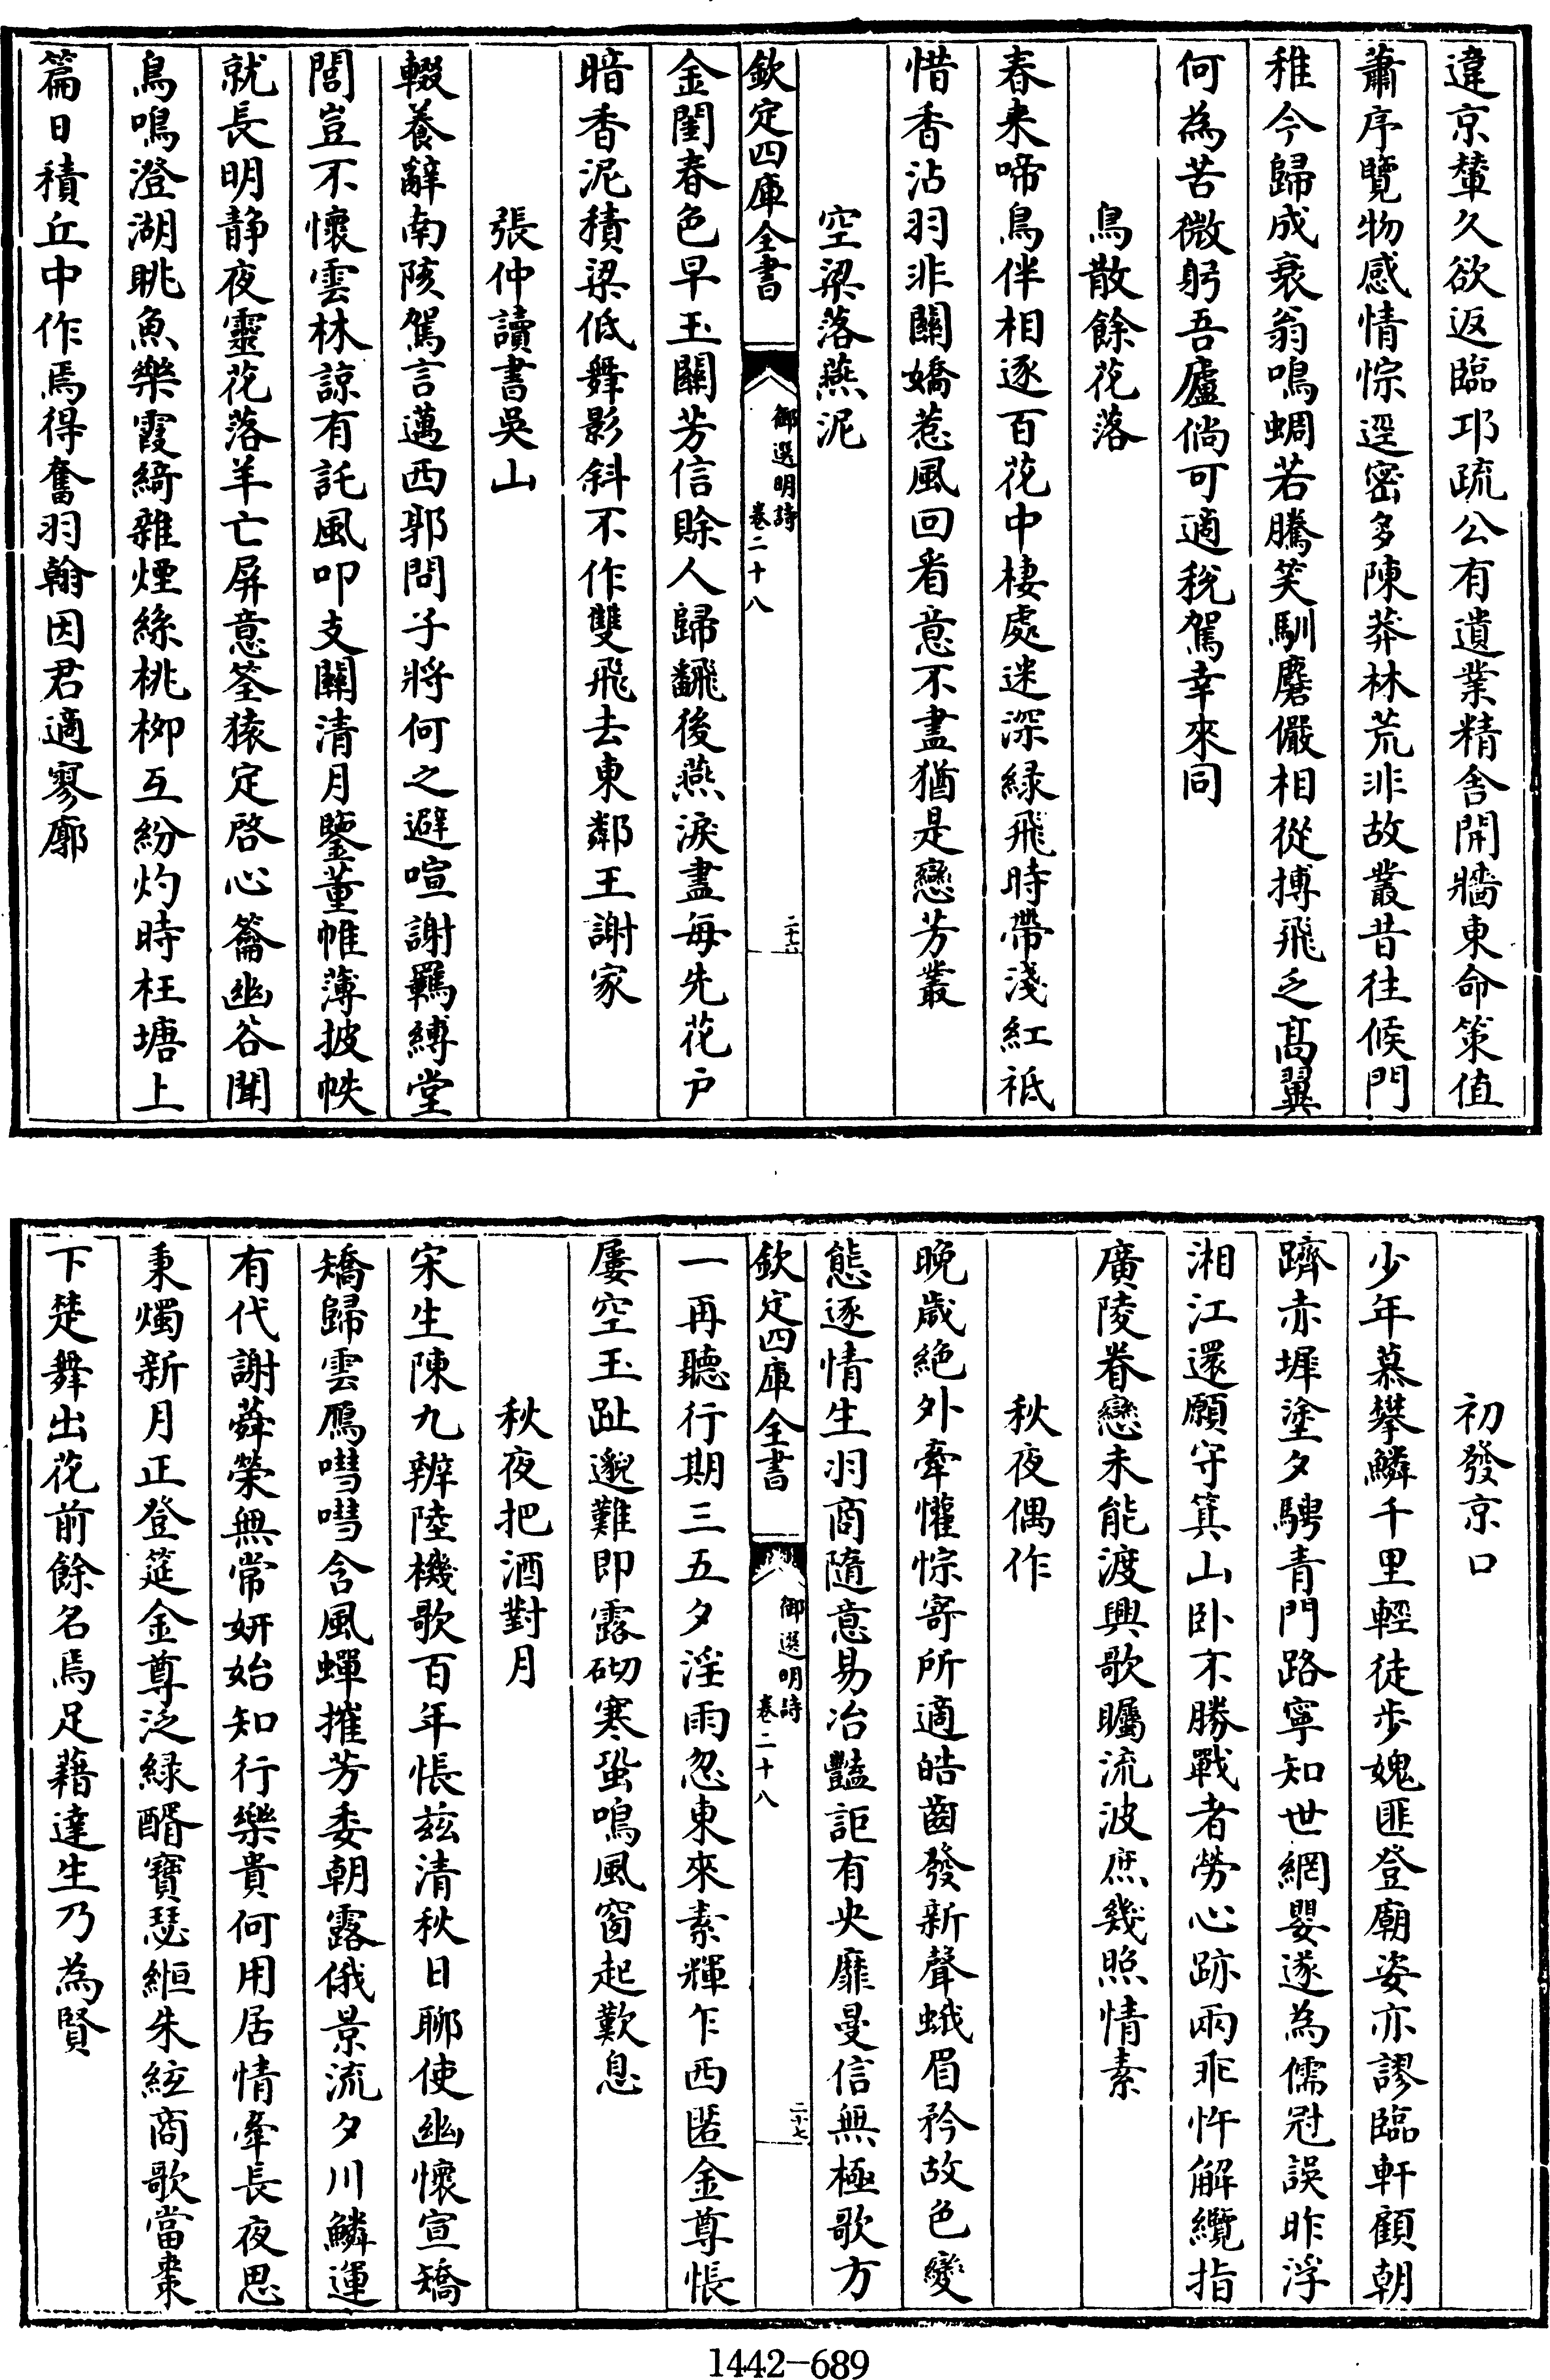 違京輦久欲返臨邛疏公有遺業精舎開牆東命策值
蕭序覽物感情悰逕密多陳莽林荒非故叢昔往候門
稚今歸成衰翁鳴蜩若騰笑馴麏儼相從搏飛乏髙翼
何為苦微躬吾廬倘可適稅駕幸來同
鳥散餘花落
春来啼鳥伴相逐百花中棲處迷深緑飛時帶淺紅祗
惜香沾羽非關嬌惹風回看意不盡猶是戀芳叢
空梁落燕泥
欽定四庫全書
御選明詩
卷二十八
二十六
金閨春色早玉關芳信賖人歸翻後燕淚盡每先花戸
暗香泥積梁低舞影斜不作雙飛去東鄰王謝家
張仲讀書吳山
輟養辭南陔駕言邁西郭問子將何之避喧謝羈縛堂
閭豈不懷雲林諒有託風叩支關清月鑒董帷薄披帙
就長明静夜靈花落羊亡屏意筌猿定啓心籥幽谷聞
鳥鳴澄湖眺魚樂霞綺雜煙絲桃栁互紛灼時枉塘上
篇日積丘中作焉得奮羽翰因君適寥廓
初發京口
少年慕攀鱗千里輕徒步媿匪登廟姿亦謬臨軒顧朝
躋赤墀塗夕騁青門路寧知世網嬰遂為儒冠誤昨浮
湘江還願守箕山卧不勝戰者勞心跡兩乖忤解纜指
廣陵眷戀未能渡興歌矚流波庶幾照情素
秋夜偶作
晚歲絶外牽懽悰寄所適皓齒發新聲蛾眉矜故色變
態逐情生羽商隨意易冶豔詎有央靡曼信無極歌方
欽定四庫全書
御選明詩
卷二十八
二十七
一再聽行期三五夕淫雨忽東來素輝乍西匿金尊悵
屢空玉趾邈難即露砌寒蛩鳴風窗起歎息
秋夜把酒對月
宋生陳九辨陸機歌百年悵兹清秋日聊使幽懷宣矯
矯歸雲鴈嘒嘒含風蟬摧芳委朝露俄景流夕川鱗運
有代謝蕣榮無常妍始知行樂貴何用居情牽長夜思
秉燭新月正登筵金尊泛緑醑寶瑟緪朱絃商歌當棗
下楚舞出花前餘名焉足藉達生乃為賢
1442-689